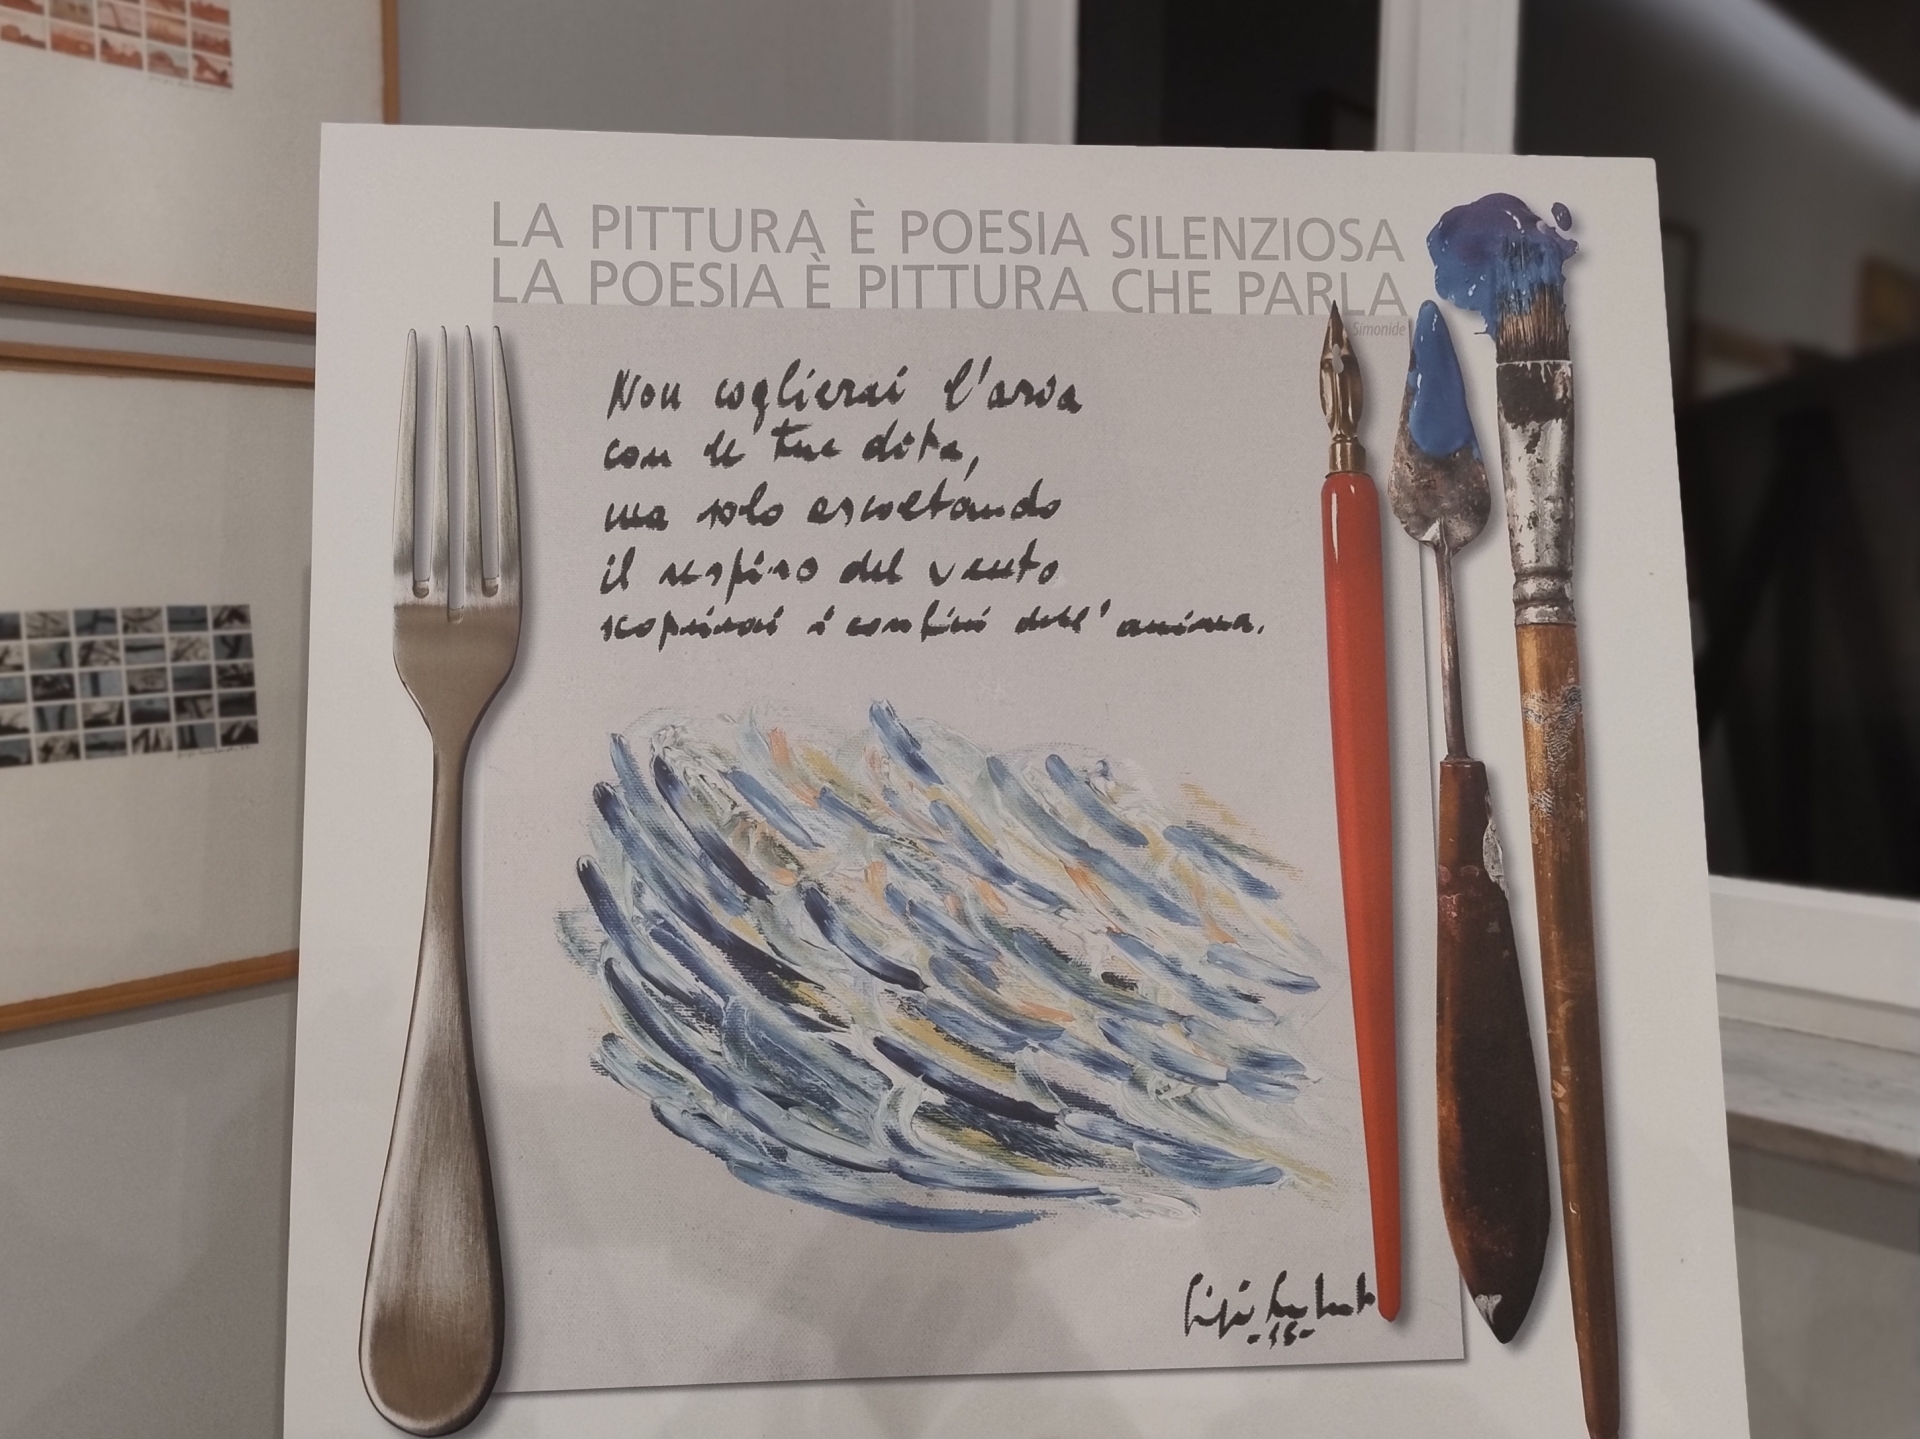 LA PITTURA È POESIA SILENZIOSA
LA POESIA È PITTURA CHE PARLA
Simonide
Non coglierai l'aria
con le tue dita,
ma solo ascoltando
il respiro del vento
scoprirai i confini dell'anima.